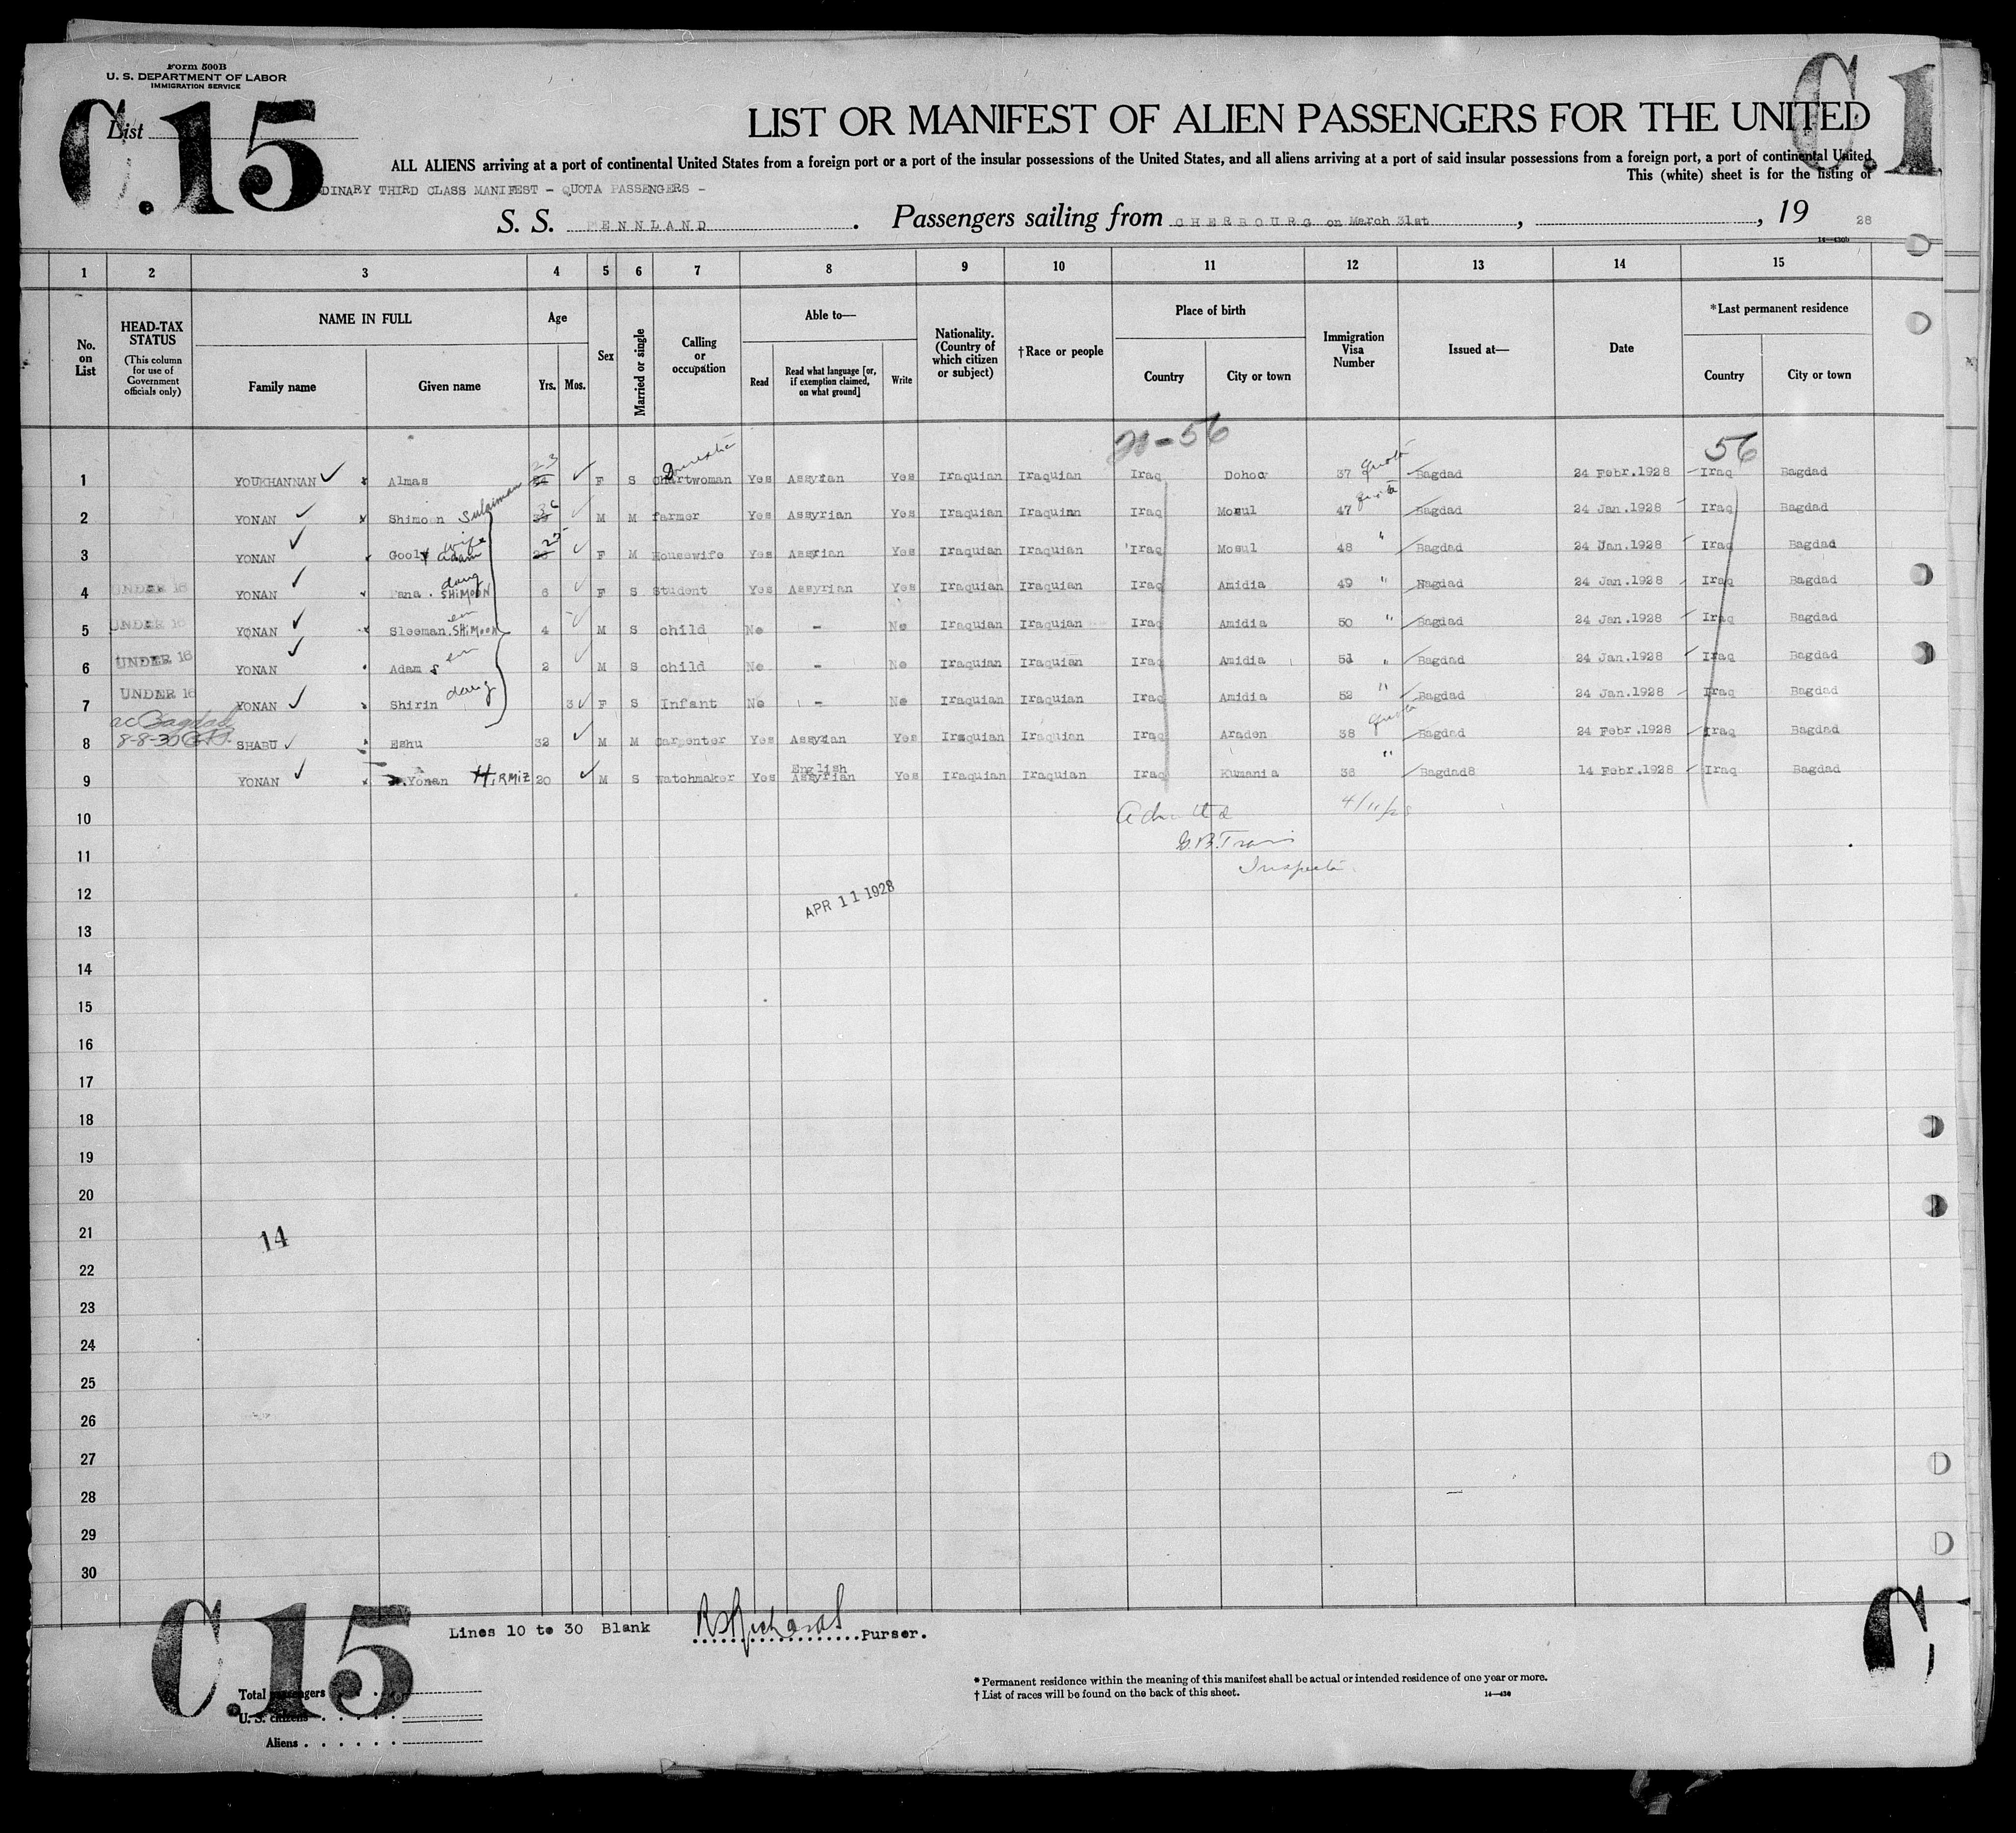 Form 500B
U. S. DEPARTMENT OF LABOR
IMMIGRATION SERVICE
List
C.15
C.1
LIST OR MANIFEST OF ALIEN PASSENGERS FOR THE UNITED
ALL ALIENS arriving at a port of continental United States from a foreign port or a port of the insular possessions of the United States, and all aliens arriving at a port of said insular possessions from a foreign port, a port of continental United
This (white) sheet is for the listing of
DINARY THIRD CLASS MANIFEST - QUOTA PASSENGERS -
S. S. PENNLAND. Passengers sailing from CHERBOURG on March 31st, , 19 28
14—430b
1 2 3 4 5 6 7 8 9 10 11 12 13 14 15
No. on List
HEAD-TAX STATUS
(This column for use of Government officials only)
NAME IN FULL
Family name Given name
Age
Yrs. Mos.
Sex
Married or single
Calling or occupation
Able to—
Read
Read what language [or, if exemption claimed, on what ground]
Write
Nationality. (Country of which citizen or subject)
†Race or people
Place of birth
Country City or town
Immigration Visa Number
Issued at—
Date
*Last permanent residence
Country City or town
56
1 YOUKHANNAN Almas 23 F S Chartwoman Domestic Yes Assyrian Yes Iraquian Iraquian Iraq Dohoc 37 quota Bagdad 24 Febr.1928 Iraq Bagdad
2 YONAN Shimoon Sulaiman M M farmer Yes Assyrian Yes Iraquian Iraquian Iraq Mosul 47 quota Bagdad 24 Jan.1928 Iraq Bagdad
3 YONAN Gooly Adam wife F M Housewife Yes Assrian Yes Iraquian Iraquian Iraq Mosul 48 " Bagdad 24 Jan.1928 Iraq Bagdad
4 UNDER 16 YONAN Fana. SHIMOON daug 6 F S Student Yes Assyrian Yes Iraquian Iraquian Iraq Amidia 49 " Bagdad 24 Jan.1928 Iraq Bagdad
5 UNDER 16 YONAN Sleeman. SHIMOON 4 M S child No - No Iraquian Iraquian Iraq Amidia 50 " Bagdad 24 Jan.1928 Iraq Bagdad
6 UNDER 16 YONAN Adam S 2 M S child No - No Iraquian Iraquian Iraq Amidia 51 " Bagdad 24 Jan.1928 Iraq Bagdad
7 UNDER 16 YONAN Shirin daug 3 F S Infant No - No Iraquian Iraquian Iraq Amidia 52 " Bagdad 24 Jan.1928 Iraq Bagdad
ac Bagdad
8-8-30
8 SHABU Eshu 32 M M Carpenter Yes Assyrian Yes Iraquian Iraquian Iraq Araden 38 quota Bagdad 24 Febr.1928 Iraq Bagdad
9 YONAN Yonan HIRMIZ 20 M S Watchmaker Yes English Assyrian Yes Iraquian Iraquian Iraq Kumania 36 " Bagdad8 14 Febr.1928 Iraq Bagdad
10
Admitted 4/11/28
11
Inspector
12
APR 11 1928
13
14
15
16
17
18
19
20
21
14
22
23
24
25
26
27
28
29
30
C.15
Lines 10 to 30 Blank
Purser.
Total passengers
U. S. citizens
Aliens
* Permanent residence within the meaning of this manifest shall be actual or intended residence of one year or more.
† List of races will be found on the back of this sheet.
14—430
C